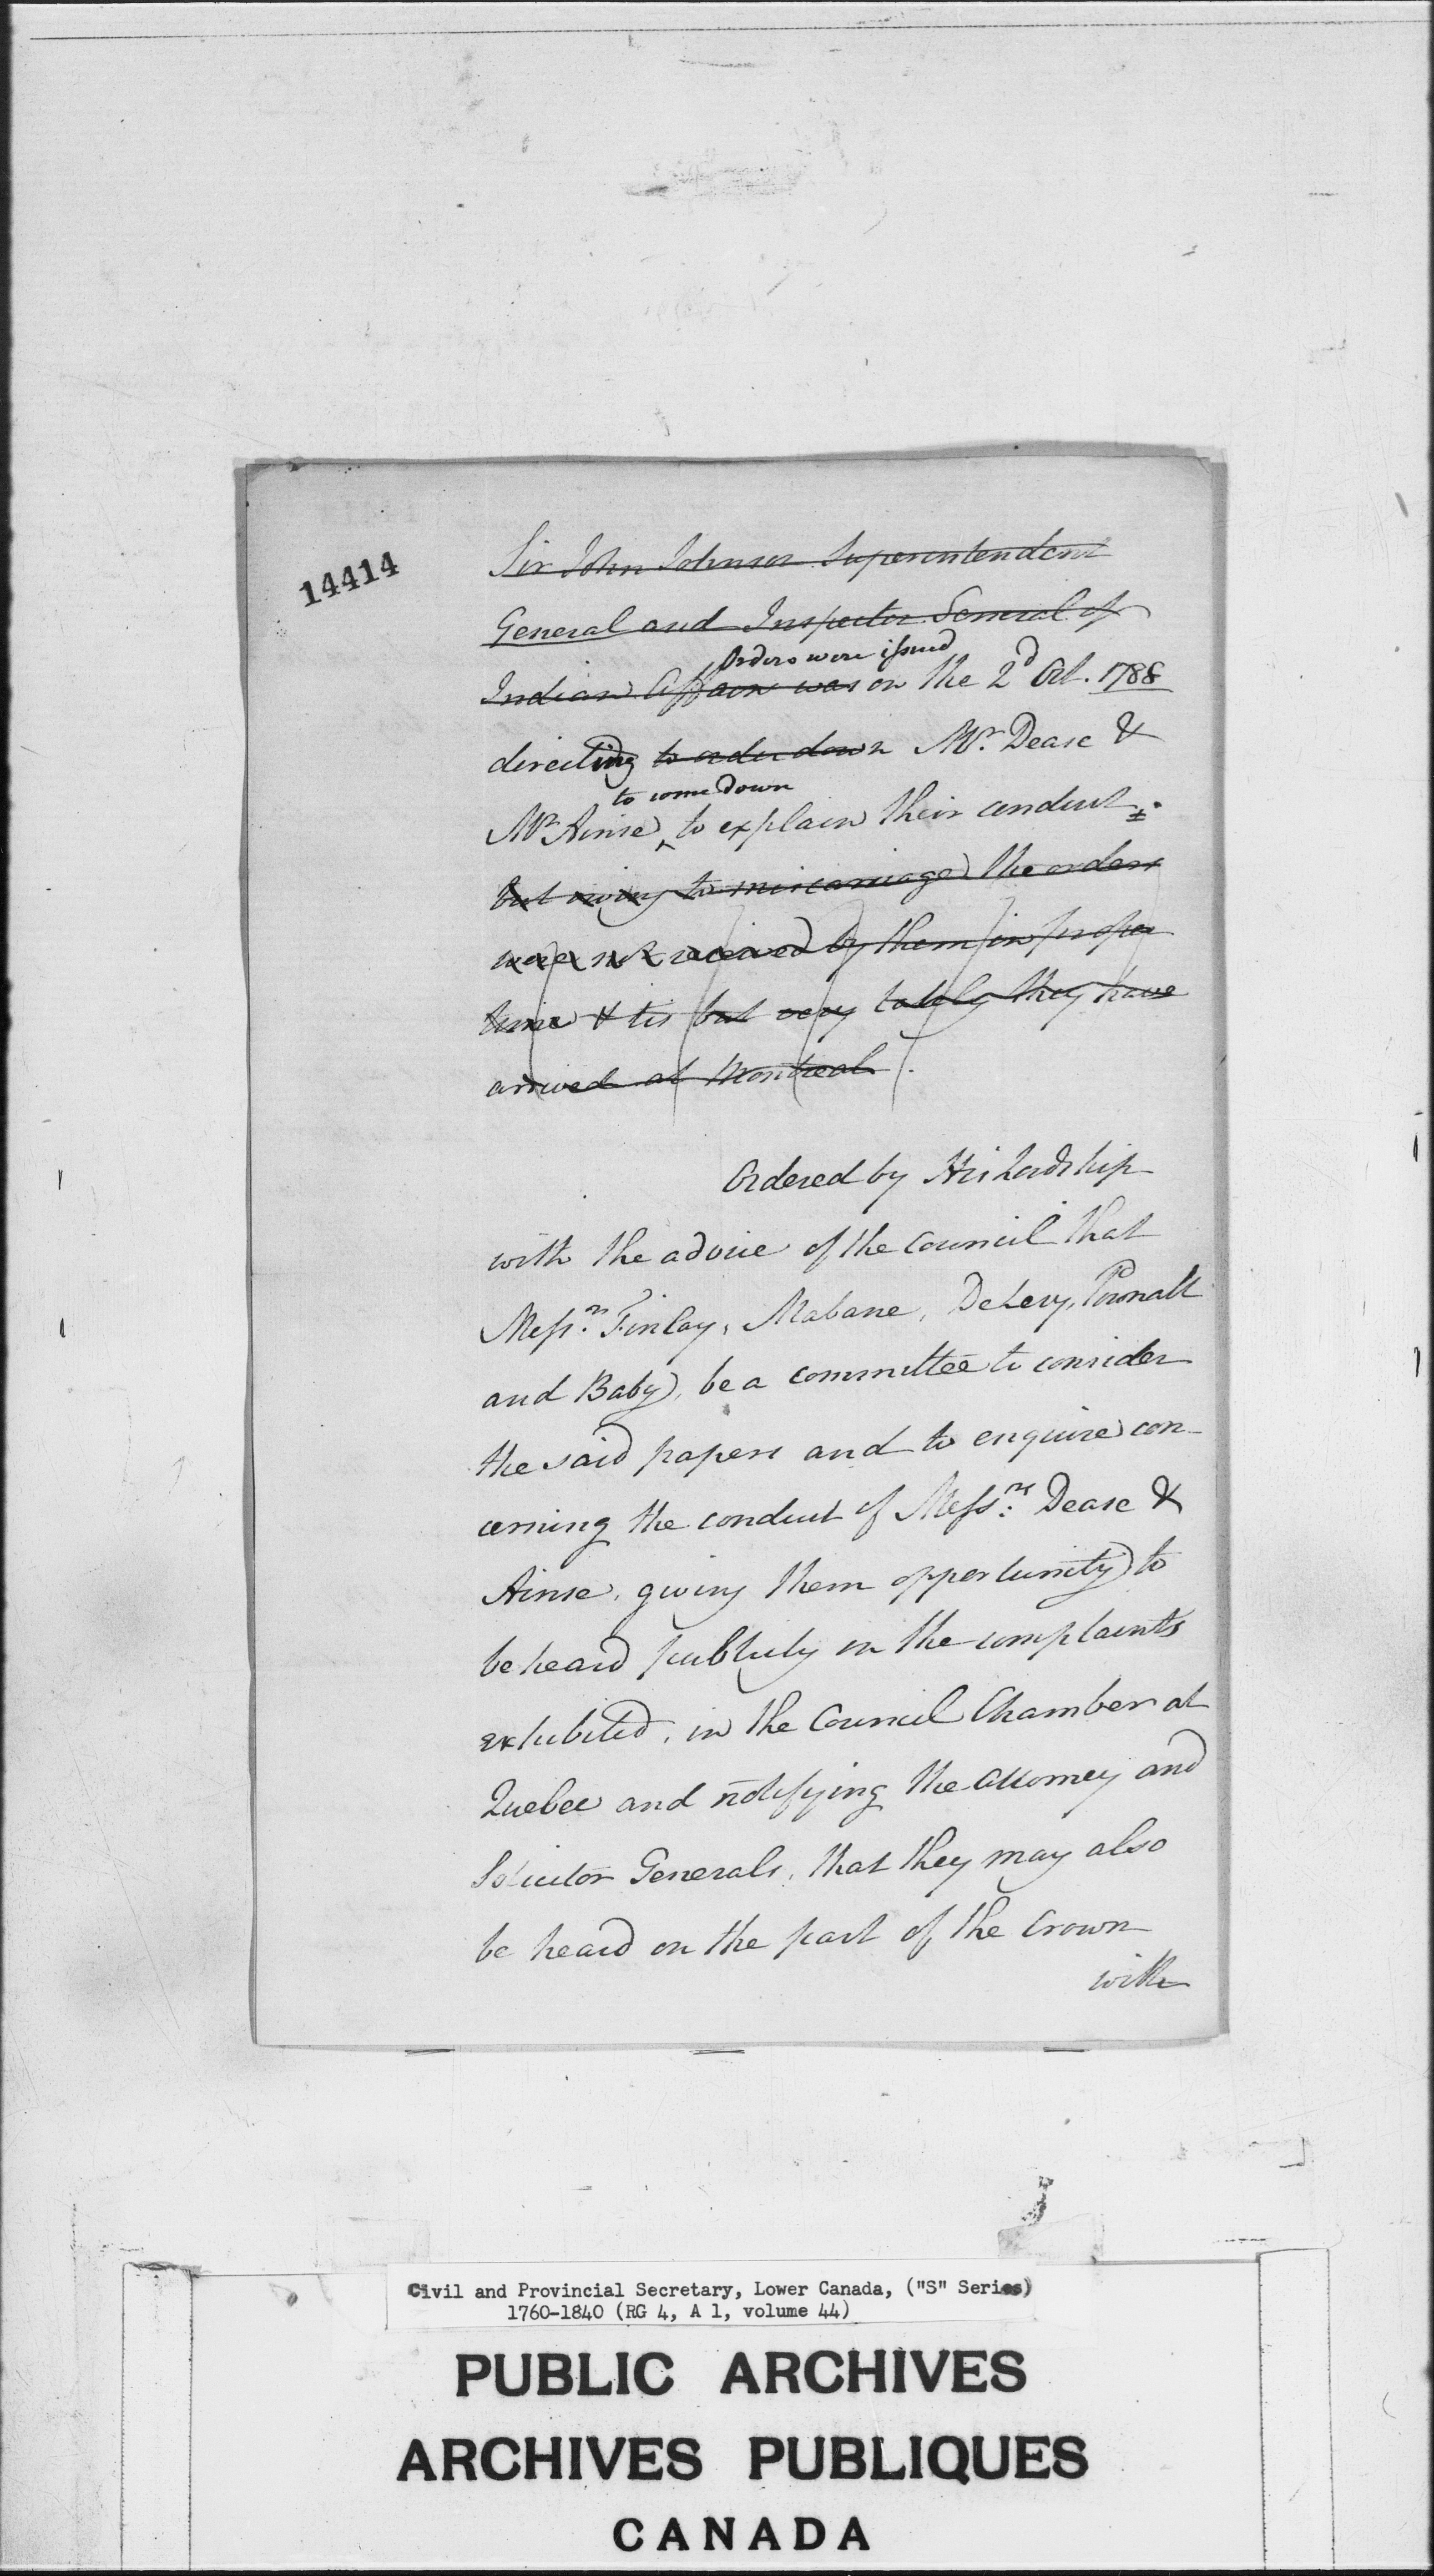 14414
Sir John Johnson Superintendent
General and Inspector General of
Orders were issued
Indian Affairs was on the 2d Oct. 1788
directing to order down Mr. Dease &
to come down
Mr Ainse, to explain their conduct.
but owing to miscarriage the orders
were not received by them in proper
time & tis but very lately they have
arrived at Montreal.
Ordered by His Lordship
with the advice of the Council that
Messrs. Finlay, Mabane, DeLery, Pownall
and Baby, be a committee to consider
the said papers and to enquire con-
cerning the conduct of Messrs: Dease &
Ainse, giving them opportunity to
be heard publicly on the complaints
exhibited, in the Council Chamber at
Quebec and notifying the Attorney and
Solicitor Generals, that they may also
be heard on the part of the Crown
with
Civil and Provincial Secretary, Lower Canada, ("S" Series)
1760-1840 (RG 4, A 1, volume 44)
PUBLIC ARCHIVES
ARCHIVES PUBLIQUES
CANADA